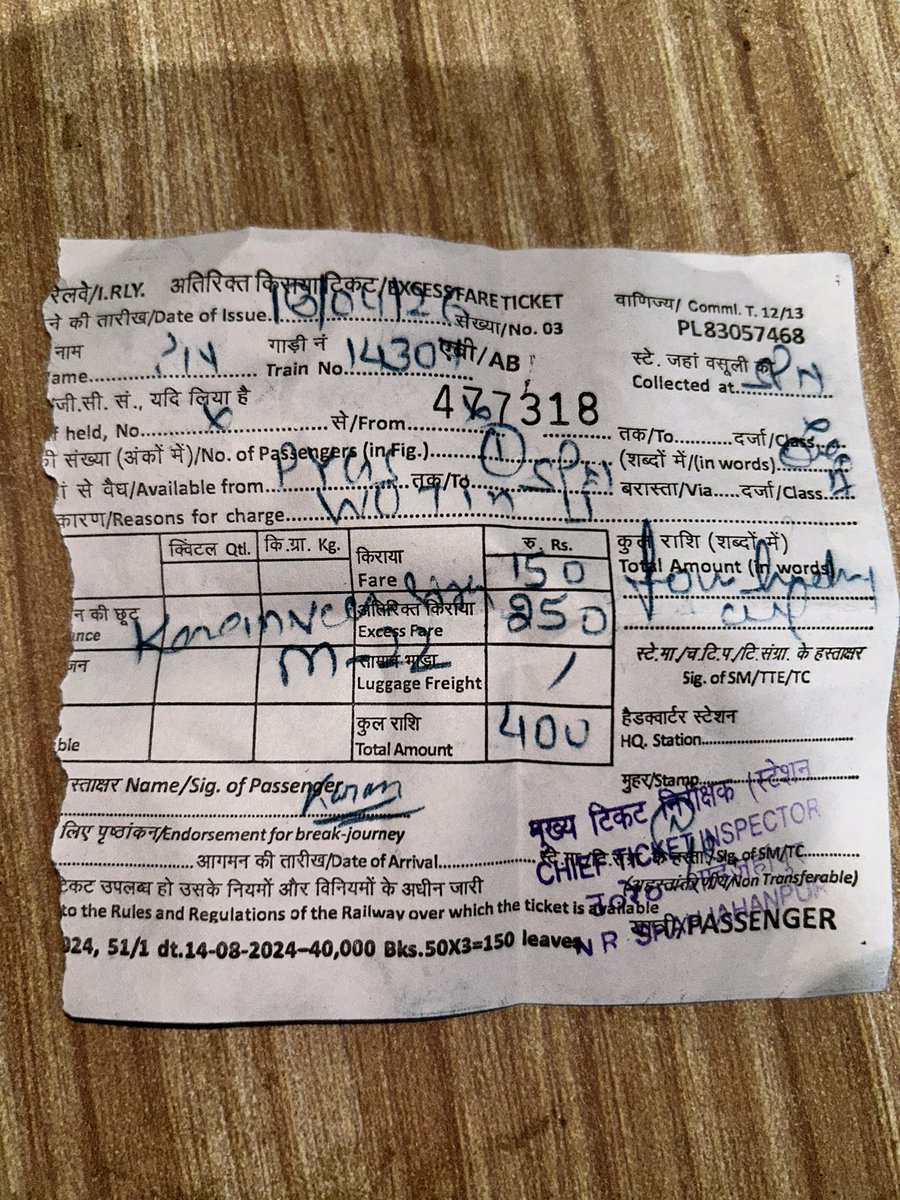 रेलवे/I.RLY. अतिरिक्त किराया टिकट/EXCESS FARE TICKET
वाणिज्य/ Comml. T. 12/13
ने की तारीख/Date of Issue संख्या/No. 03
PL83057468
नाम गाड़ी नं एबी/AB
ame Train No. 14307
स्टे. जहां वसूली की
Collected at SPN
जी.सी. सं., यदि लिया है
477318
f held, No. x से/From तक/To दर्जा/Class
ी संख्या (अंकों में)/No. of Passengers (in Fig.) 1 (शब्दों में/(in words)
ां से वैध/Available from तक/To SPN बरास्ता/Via दर्जा/Class II
कारण/Reasons for charge WOT in II
क्विंटल Qtl. कि.ग्रा. Kg. रु. Rs.
किराया
Fare 150
कुल राशि (शब्दों में)
Total Amount (in words)
न की छूट अतिरिक्त किराया
ance Excess Fare 250
M-22
जन सामान भाड़ा
Luggage Freight /
स्टे.मा./च.टि.प./टि.संग्रा. के हस्ताक्षर
Sig. of SM/TTE/TC
कुल राशि
ble Total Amount 400
हैडक्वार्टर स्टेशन
HQ. Station
स्ताक्षर Name/Sig. of Passenger Karan
मुहर/Stamp
मुख्य टिकट निरीक्षक (स्टेशन
लिए पृष्ठांकन/Endorsement for break-journey
CHIEF TICKET INSPECTOR
आगमन की तारीख/Date of Arrival
Sig. of SM/TC
(अहस्तांतरणीय/Non Transferable)
टिकट उपलब्ध हो उसके नियमों और विनियमों के अधीन जारी
to the Rules and Regulations of the Railway over which the ticket is available
N R SHAHJAHANPUR
यात्री/PASSENGER
024, 51/1 dt.14-08-2024–40,000 Bks.50X3=150 leaves